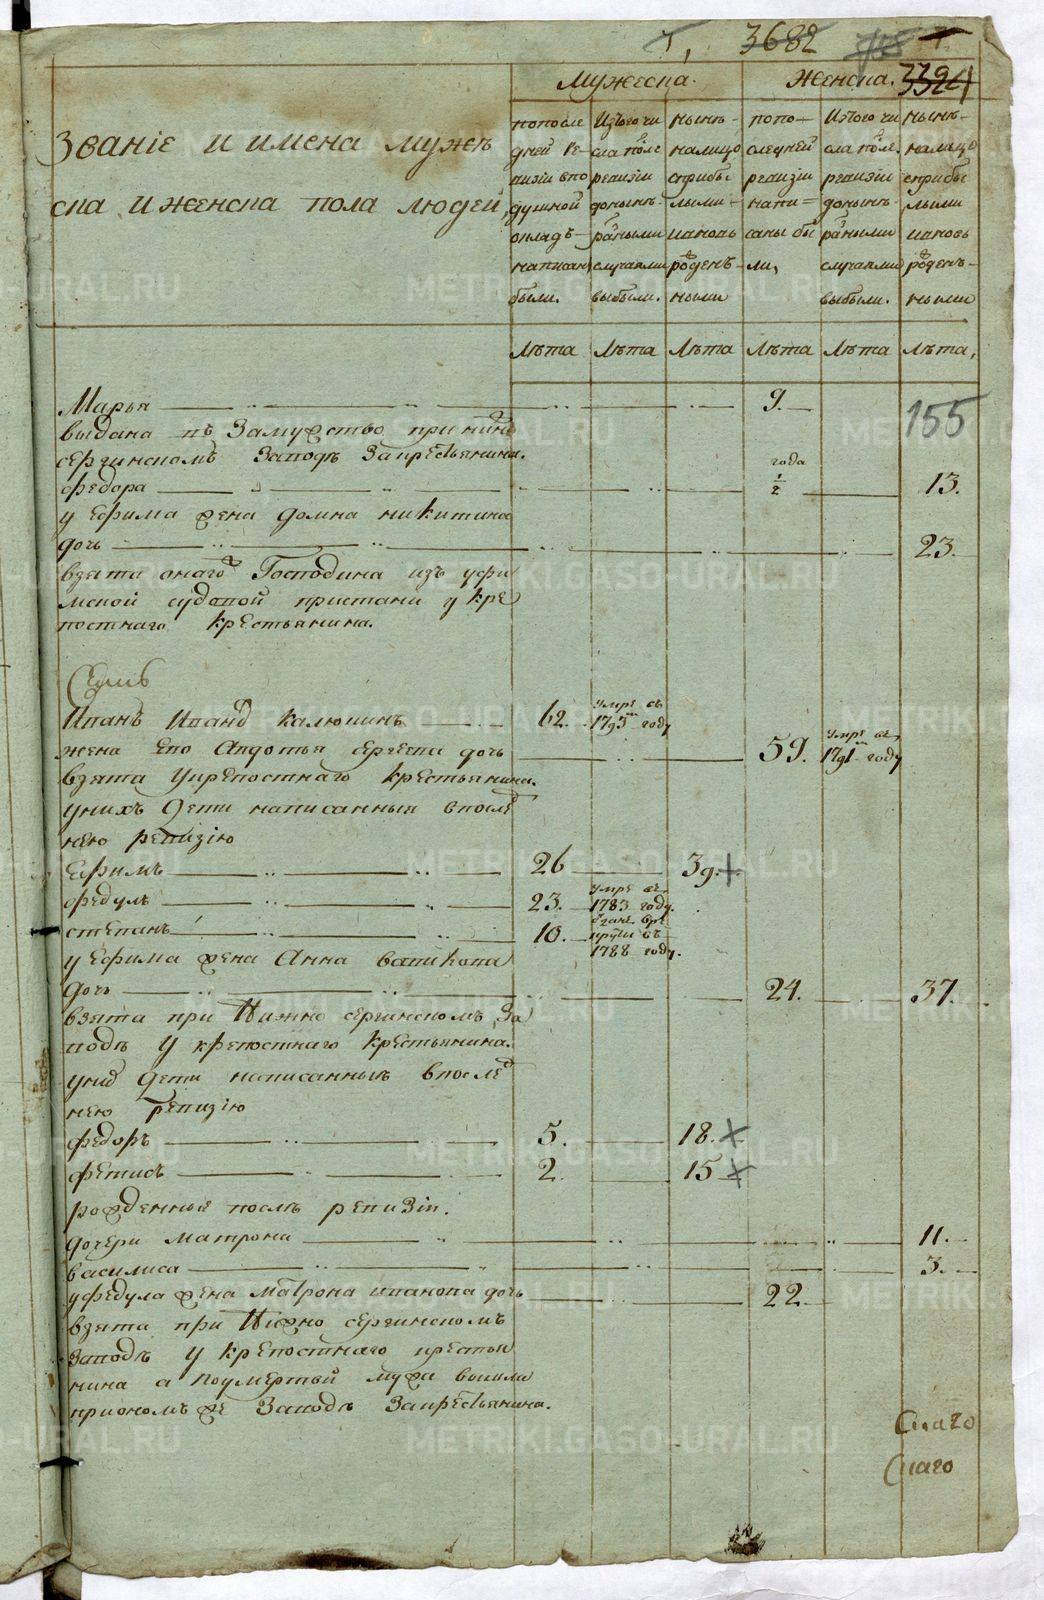 3682
3324
Мужеска.
Женска.
Званіе и имена мужѣ
ска и женска пола людей,
попосле
дней ре
визіи впо
душной
окладъ
написан
были.
Изтого чи
сла после
ревизіи
донынѣ
разными
случаями
выбыли.
нынѣ
налицо
сприбы
лыми
ивновь
рожден
ными
попо
следней
ревизіи
напи
саны бы
ли,
Изтого чи
сла после
ревизіи
донынѣ
разными
случаями
выбыли.
нынѣ
налицо
сприбы
лыми
ивновь
рожденъ
ными
Лѣта Лѣта Лѣта Лѣта Лѣта Лѣта,
155
Марья 9.
выдана въ Замужство при нижно
сергинскомъ Заводѣ Закрестьянина.
года
Федора ½ 13.
у Ефима жена домна никитина
дочь 23.
взята онаго Господина изъ уфи
мской судовой пристани у кре
постнаго крестьянина.
Семь
Иванъ Иванов Калюшинъ 62. умре въ 1795м году
жена Ево Авдотья Сергеева дочь 59. умре въ 1791м году
взята укрепостнаго крестьянина.
унихъ дети написанныя впослед
нею ревизію
Ефимъ 26 39.
Федулъ 23. умре въ 1783 году.
степанъ 10. отданъ врекруты въ 1788 году.
у Ефима жена Анна
дочь 24. 37.
взята при Нижно сергинскомъ За
водѣ у крепостнаго крестьянина.
уних дети написанныя впослед
нею ревизію
Федоръ 5. 18.
Фетисъ 2. 15
рожденныя послѣ ревизіи.
дочери матрона 11.
василиса 3.
уфедула жена матрона иванова дочь 22.
взята при Нижно сергинскомъ
Заводѣ у крепостнаго крестья
нина а поумертвой мужа вышла
приономъ же Заводѣ Закрестьянина.